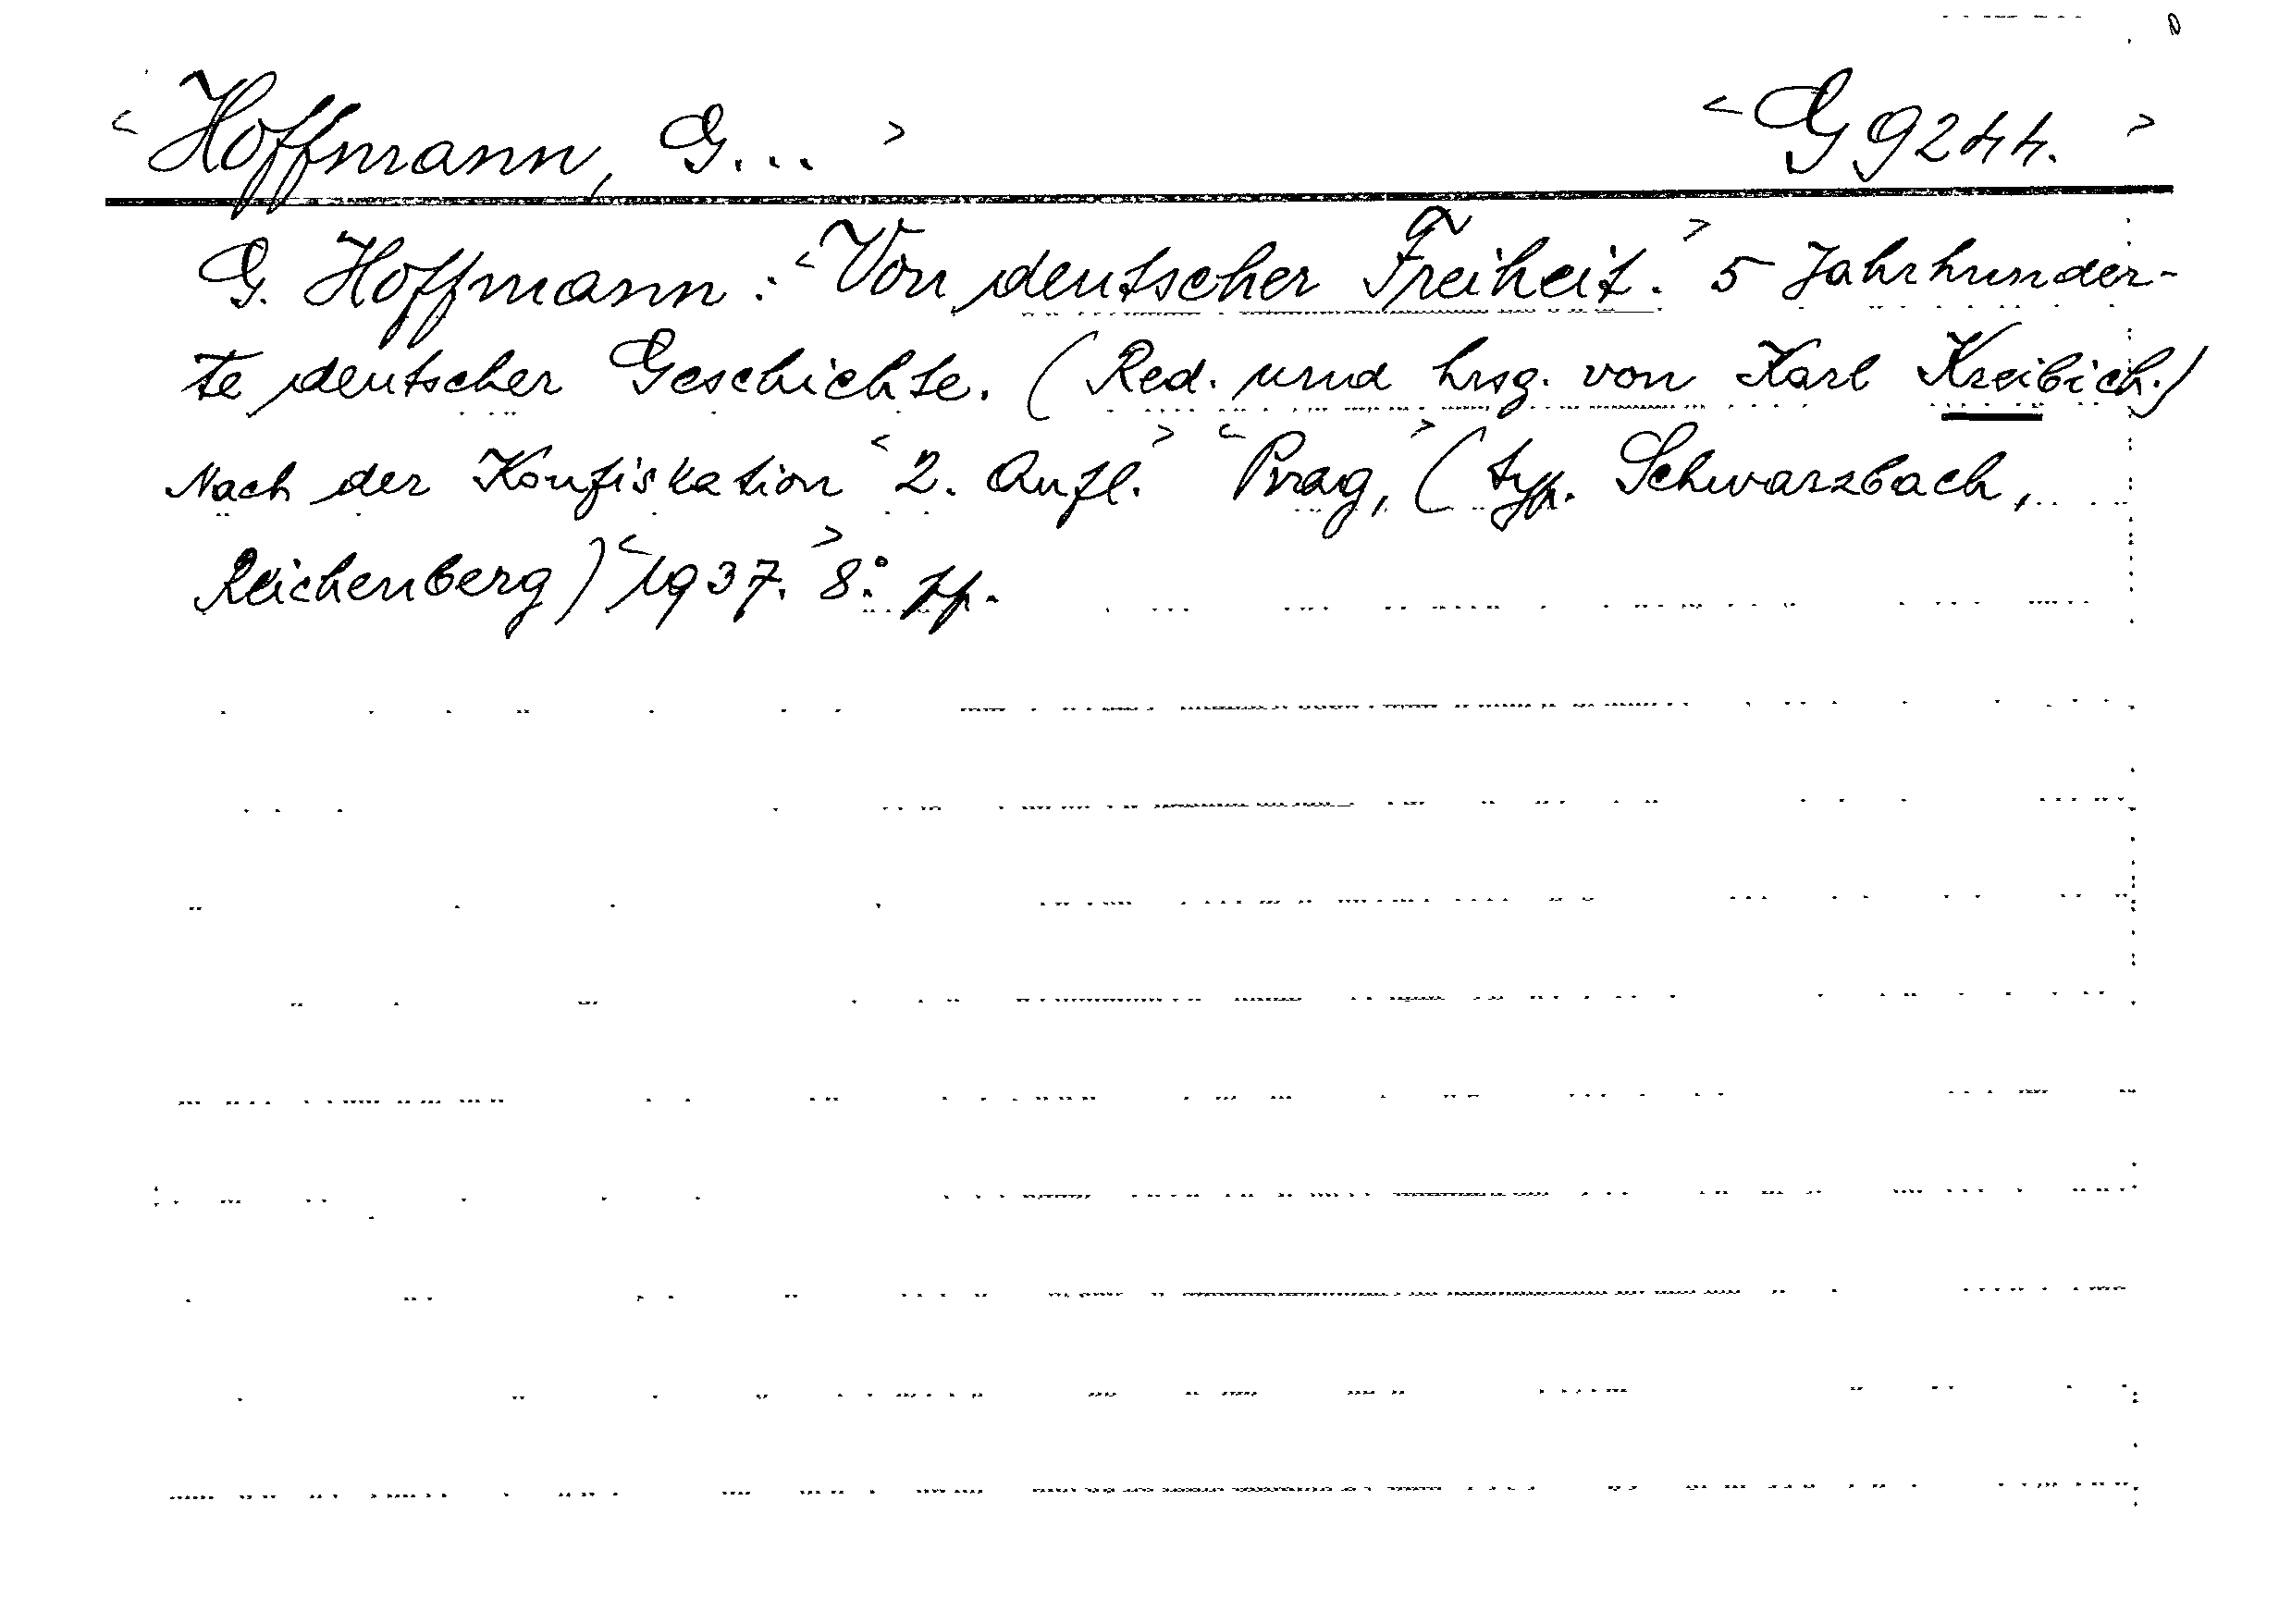 <Hoffmann, G...> <G 9244.>
G. Hoffmann: <Von deutscher Freiheit.> 5 Jahrhunder-
te deutscher Geschichte. (Red. und hrsg. von Karl Kreibich.)
Nach der Konfiskation <2. Aufl.> <Prag,> (typ. Schwarzbach,
Reichenberg) <1937.> 8° pp.